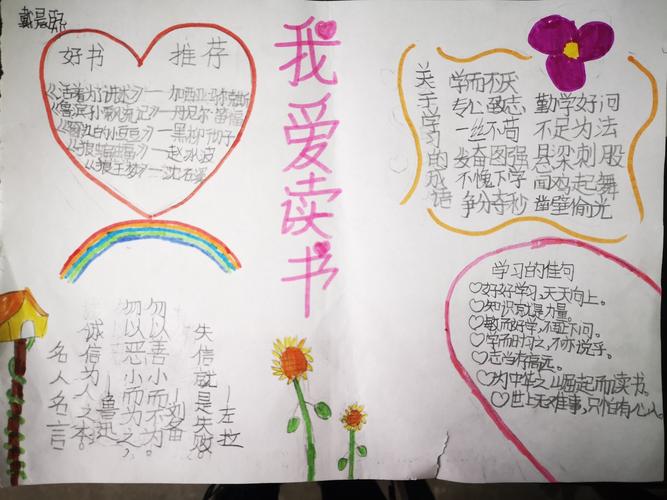 我爱读书
好书 推荐
《活着为了讲述》——加西亚·马尔克斯
《鲁滨孙漂流记》——丹尼尔·笛福
《窗边的小豆豆》——黑柳彻子
——赵冰波
《狼王梦》——沈石溪
关于学习的成语
学而不厌
专心致志 勤学好问
一丝不苟 不足为法
发奋图强 悬梁刺股
不愧下学 闻鸡起舞
争分夺秒 凿壁偷光
学习的佳句
好好学习,天天向上。
知识就是力量。
敏而好学,不耻下问。
学而时习之,不亦说乎。
志当存高远。
为中华之崛起而读书。
世上无难事,只怕有心人。
失信就是失败。
——左拉
勿以善小而不为。
勿以恶小而为之,
——刘备
诚信为人之本。
——鲁迅
名人名言